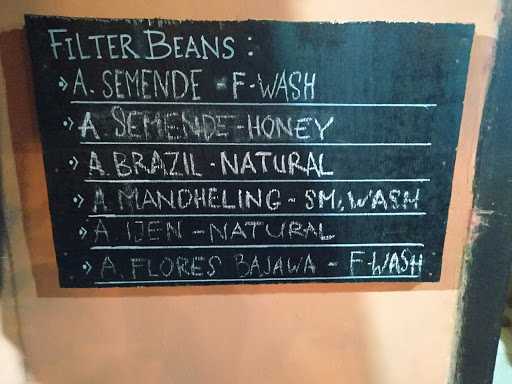 FILTER BEANS :
A. SEMENDE - F-WASH
A. SEMENDE-HONEY
A. BRAZIL - NATURAL
A. MANDHELING - SM. WASH
A. IJEN - NATURAL
A. FLORES BAJAWA - F-WASH